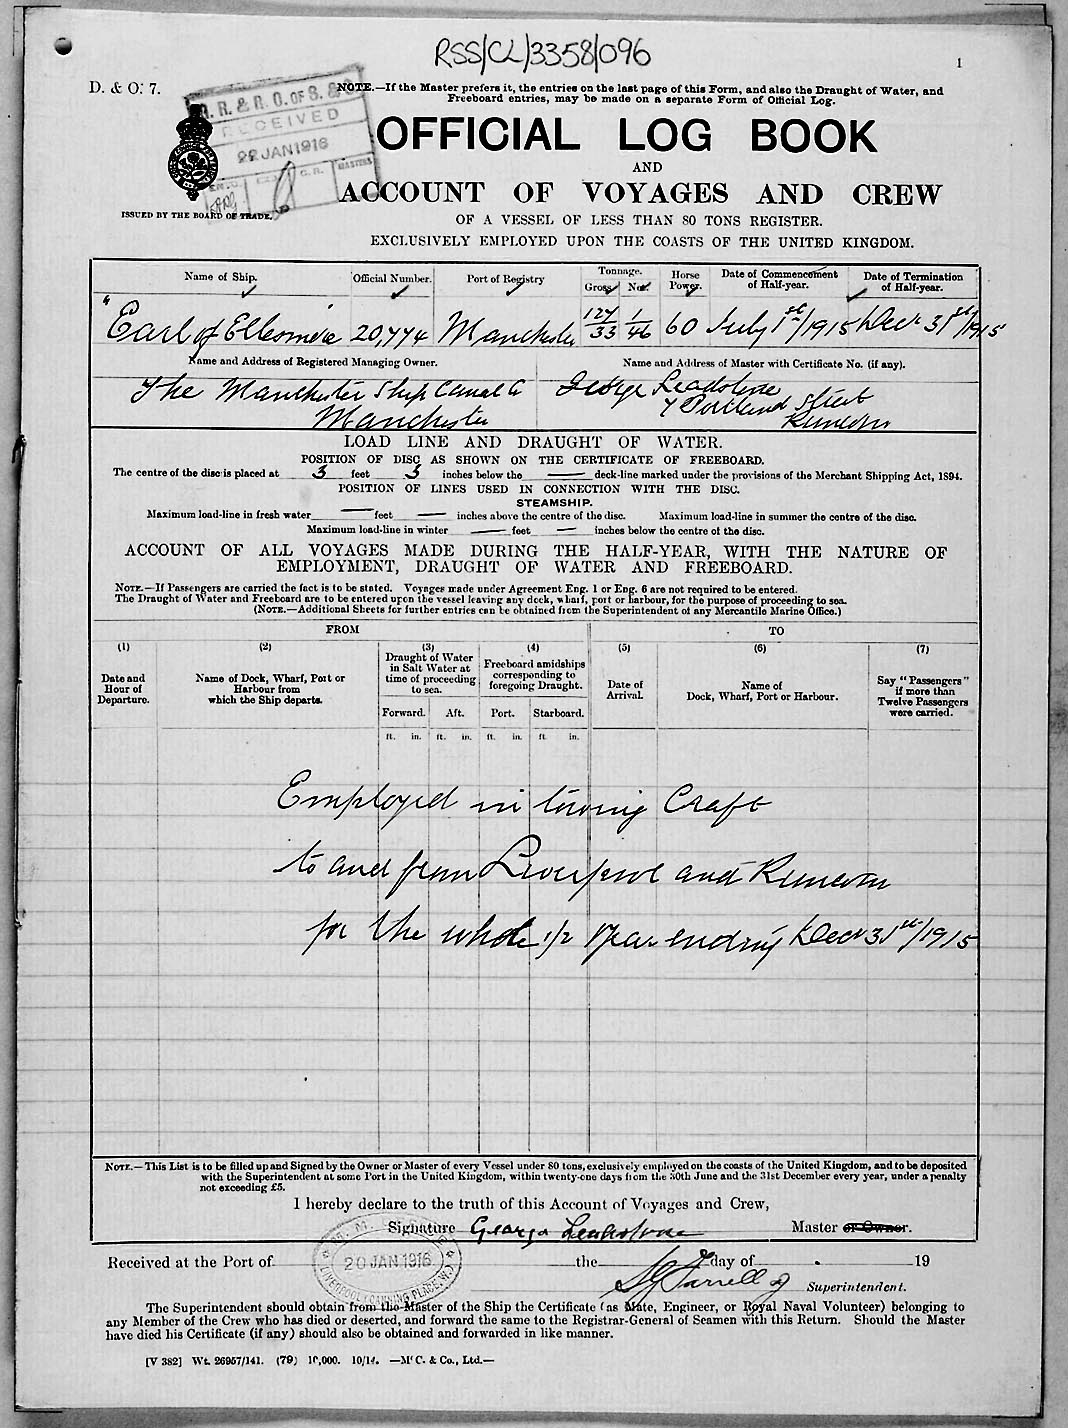 RSS/CL/3358/096
1
D. & O. 7.
NOTE.—If the Master prefers it, the entries on the last page of this Form, and also the Draught of Water, and
Freeboard entries, may be made on a separate Form of Official Log.
R. & R. O. OF S. & S.
RECEIVED
22 JAN 1916
C. R.
MASTERS
OFFICIAL LOG BOOK
AND
ACCOUNT OF VOYAGES AND CREW
ISSUED BY THE BOARD OF TRADE.
OF A VESSEL OF LESS THAN 80 TONS REGISTER.
EXCLUSIVELY EMPLOYED UPON THE COASTS OF THE UNITED KINGDOM.
Name of Ship. Official Number. Port of Registry Tonnage. Gross Net. Horse Power. Date of Commencement of Half-year. Date of Termination of Half-year.
"Earl of Ellesmere 20,774 Manchester 127/33 1/46 60 July 1st/1915 Dec 31st/1915
Name and Address of Registered Managing Owner. Name and Address of Master with Certificate No. (if any).
The Manchester Ship Canal Co George
Manchester 7 Portland Street
Runcorn
LOAD LINE AND DRAUGHT OF WATER.
POSITION OF DISC AS SHOWN ON THE CERTIFICATE OF FREEBOARD.
The centre of the disc is placed at 3 feet 3 inches below the — deck-line marked under the provisions of the Merchant Shipping Act, 1894.
POSITION OF LINES USED IN CONNECTION WITH THE DISC.
STEAMSHIP.
Maximum load-line in fresh water — feet — inches above the centre of the disc. Maximum load-line in summer the centre of the disc.
Maximum load-line in winter — feet — inches below the centre of the disc.
ACCOUNT OF ALL VOYAGES MADE DURING THE HALF-YEAR, WITH THE NATURE OF
EMPLOYMENT, DRAUGHT OF WATER AND FREEBOARD.
NOTE.—If Passengers are carried the fact is to be stated. Voyages made under Agreement Eng. 1 or Eng. 6 are not required to be entered.
The Draught of Water and Freeboard are to be entered upon the vessel leaving any dock, wharf, port or harbour, for the purpose of proceeding to sea.
(NOTE.—Additional Sheets for further entries can be obtained from the Superintendent of any Mercantile Marine Office.)
FROM TO
(1) (2) (3) (4) (5) (6) (7)
Date and Hour of Departure.
Name of Dock, Wharf, Port or Harbour from which the Ship departs.
Draught of Water in Salt Water at time of proceeding to sea.
Freeboard amidships corresponding to foregoing Draught.
Date of Arrival.
Name of Dock, Wharf, Port or Harbour.
Say "Passengers" if more than Twelve Passengers were carried.
Forward. Aft. Port. Starboard.
ft. in. ft. in. ft. in. ft. in.
Employed in towing Craft
to and from Liverpool and Runcorn
for the whole 1/2 year ending Dec 31st/1915
NOTE.—This List is to be filled up and Signed by the Owner or Master of every Vessel under 80 tons, exclusively employed on the coasts of the United Kingdom, and to be deposited
with the Superintendent at some Port in the United Kingdom, within twenty-one days from the 30th June and the 31st December every year, under a penalty
not exceeding £5.
I hereby declare to the truth of this Account of Voyages and Crew,
Signature George Master or Owner.
20 JAN 1916
LIVERPOOL CANNING PLACE
Received at the Port of the day of 19
Superintendent.
The Superintendent should obtain from the Master of the Ship the Certificate (as Mate, Engineer, or Royal Naval Volunteer) belonging to
any Member of the Crew who has died or deserted, and forward the same to the Registrar-General of Seamen with this Return. Should the Master
have died his Certificate (if any) should also be obtained and forwarded in like manner.
[V 382] Wt. 26957/141. (79) 10,000. 10/14. —McC. & Co., Ltd.—